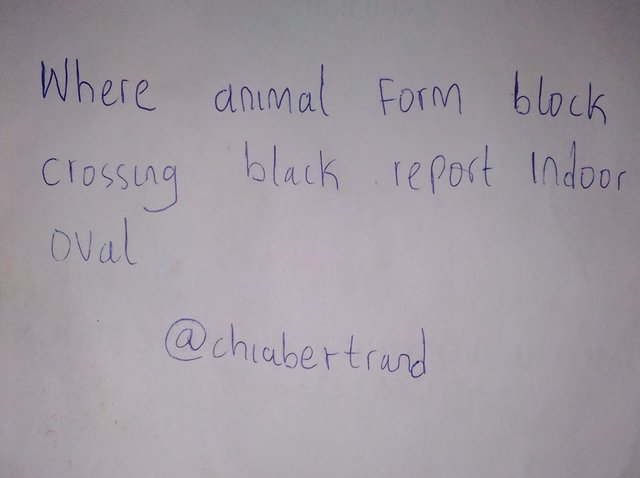 Where animal Form block
crossing black report Indoor
oval
@chiabertrand